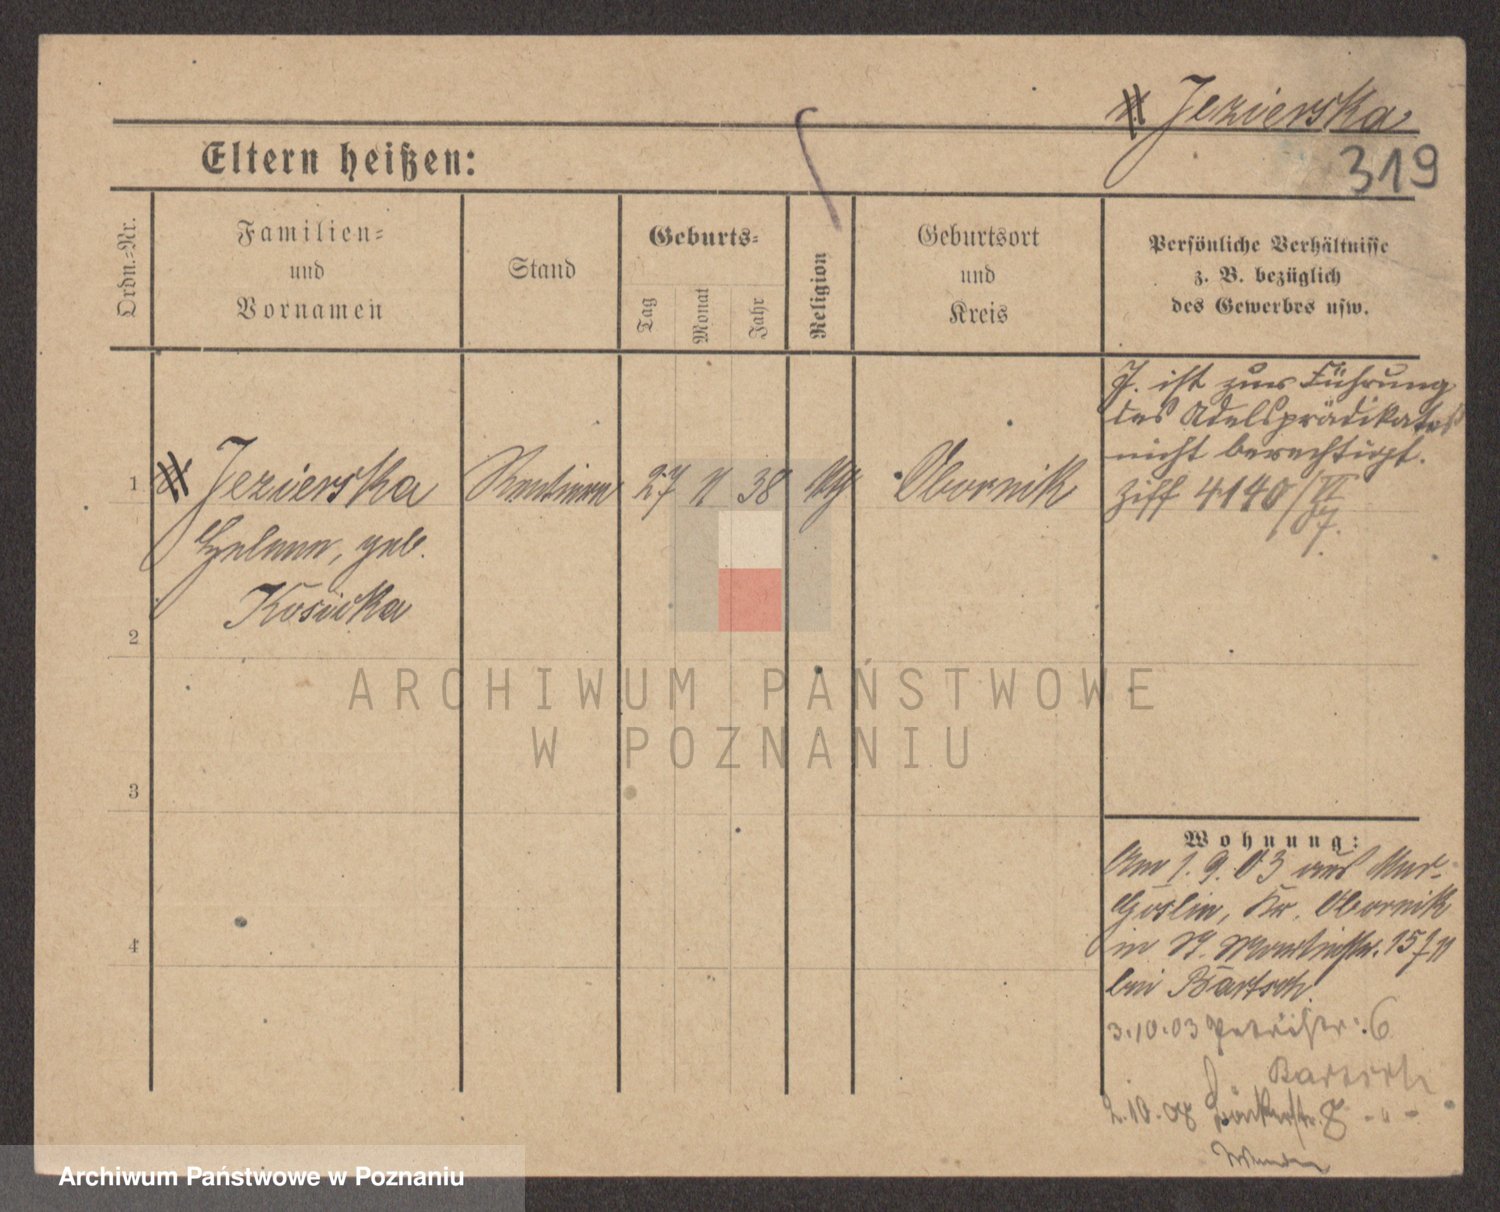 Jezierska
319
Eltern heißen:
Ordn.-Nr.
Familien-
und
Vornamen
Stand
Geburts-
Tag
Monat
Jahr
Religion
Geburtsort
und
Kreis
Persönliche Verhältnisse
z. B. bezüglich
des Gewerbes usw.
J. ist zur Führung
des Adelsprädikates
nicht berechtigt.
Ziff 4140/VI
07.
1 Jezierska Rentiere 27 38 Obornik
Helene, geb.
Kosicka
2
3
4
ARCHIWUM PAŃSTWOWE
W POZNANIU
Wohnung:
Am 1.9.03 aus Mur.
Goslin, Kr. Obornik
in St. Martinstr.
bei Bartsch
3.10.03 Petristr. 6
Bartsch
2.10. 8 - " -
Archiwum Państwowe w Poznaniu